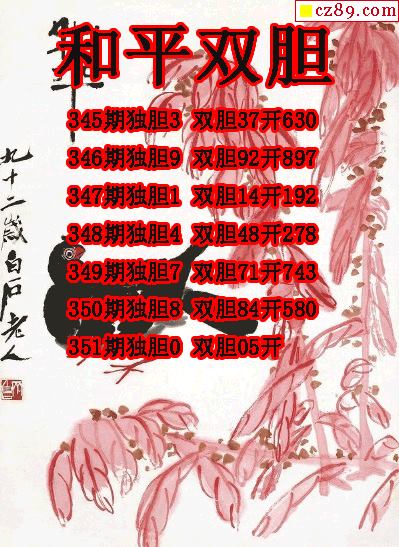 cz89.com
和平双胆
345期独胆3 双胆37开630
346期独胆9 双胆92开897
347期独胆1 双胆14开192
348期独胆4 双胆48开278
349期独胆7 双胆71开743
350期独胆8 双胆84开580
351期独胆0 双胆05开
九十二歲白石老人